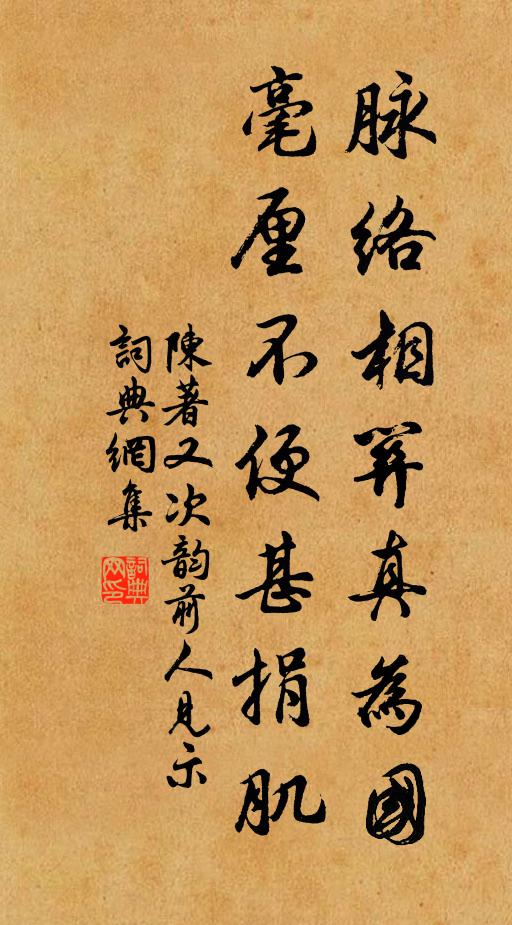 脉络相關真為國
毫厘不便甚捐肌
陳著又次韵前人見示
詞典網集
詞典网印